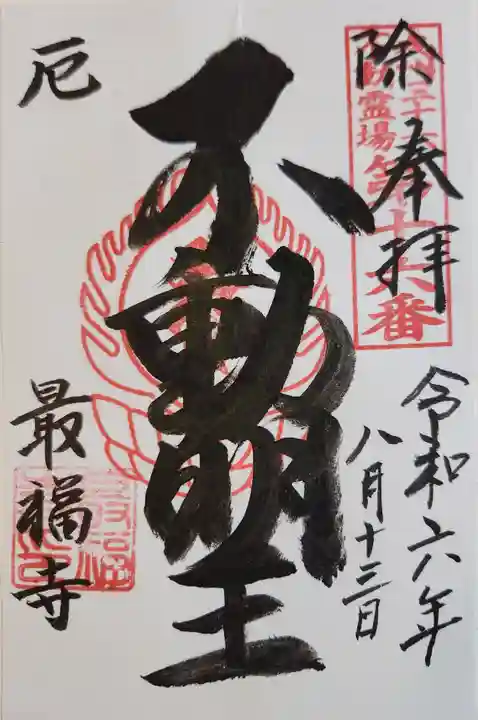 除
奉拝
霊場
第十六番
令和六年
八月十三日
不動明王
厄
最福寺